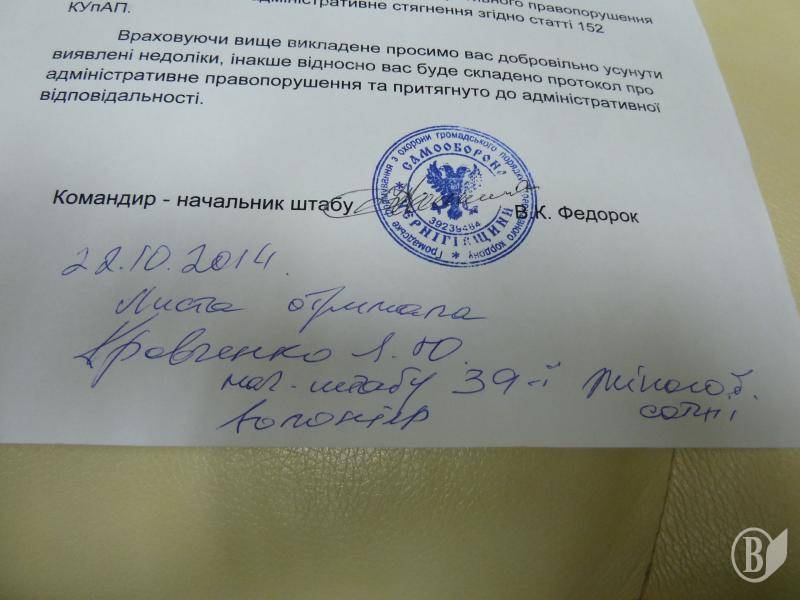 правопорушення
адміністративне стягнення згідно статті 152
КУпАП.
Враховуючи вище викладене просимо вас добровільно усунути
виявлені недоліки, інакше відносно вас буде складено протокол про
адміністративне правопорушення та притягнуто до адміністративної
відповідальності.
Командир - начальник штабу
В.К. Федорок
Громадське формування з охорони громадського порядку державного кордону
САМООБОРОНА
ЧЕРНІГІВЩИНИ
39239484
22.10.2014.
Листа отримала
Кравченко Л.Ю.
нач. штабу 39-ї жіночої
сотні
волонтер
B